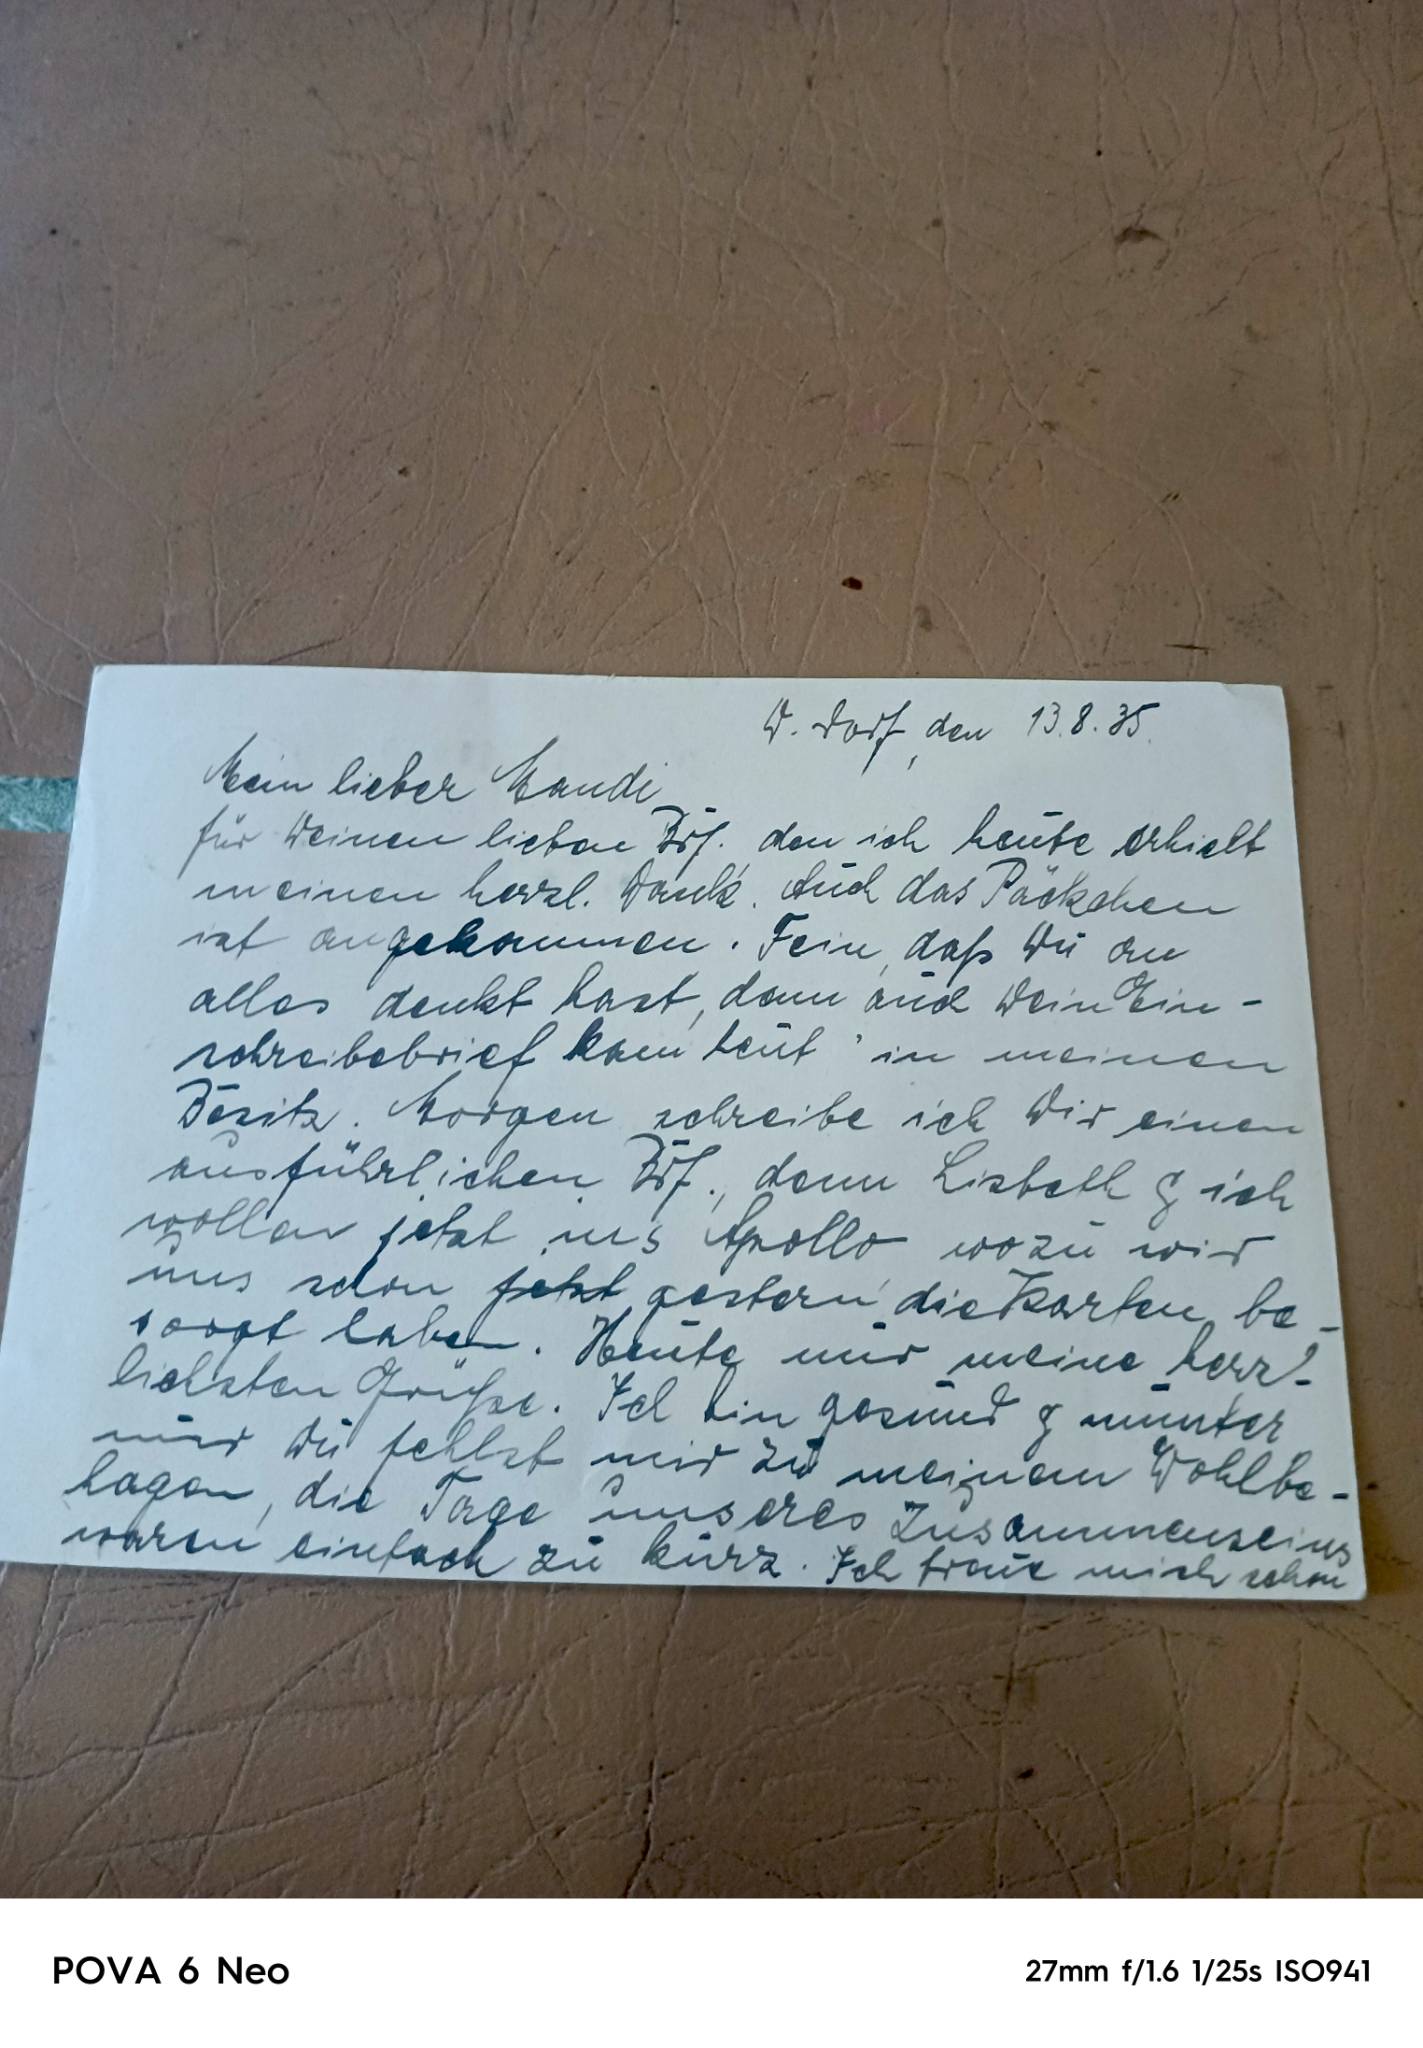 D. dorf, den 13.8.35.
Mein lieber Mandi
für Deinen lieben Brf. den ich heute erhielt
meinen herzl. Dank. Auch das Päckchen
ist angekommen. Fein, daß Du an
alles denkt hast, denn auch Dein Ein-
schreibebrief kam heut' in meinen
Besitz. Morgen schreibe ich Dir einen
ausführlichen Brf., denn Lisbeth & ich
wollen jetzt ins Apollo wozu wir
uns schon jetzt gestern die Karten be-
sorgt haben. Heute nur meine herz-
lichsten Grüße. Ich bin gesund & munter
nur Du fehlst mir zu meinem Wohlbe-
hagen, die Tage unseres Zusammenseins
waren einfach zu kurz. Ich freue mich schon
POVA 6 Neo
27mm f/1.6 1/25s ISO941